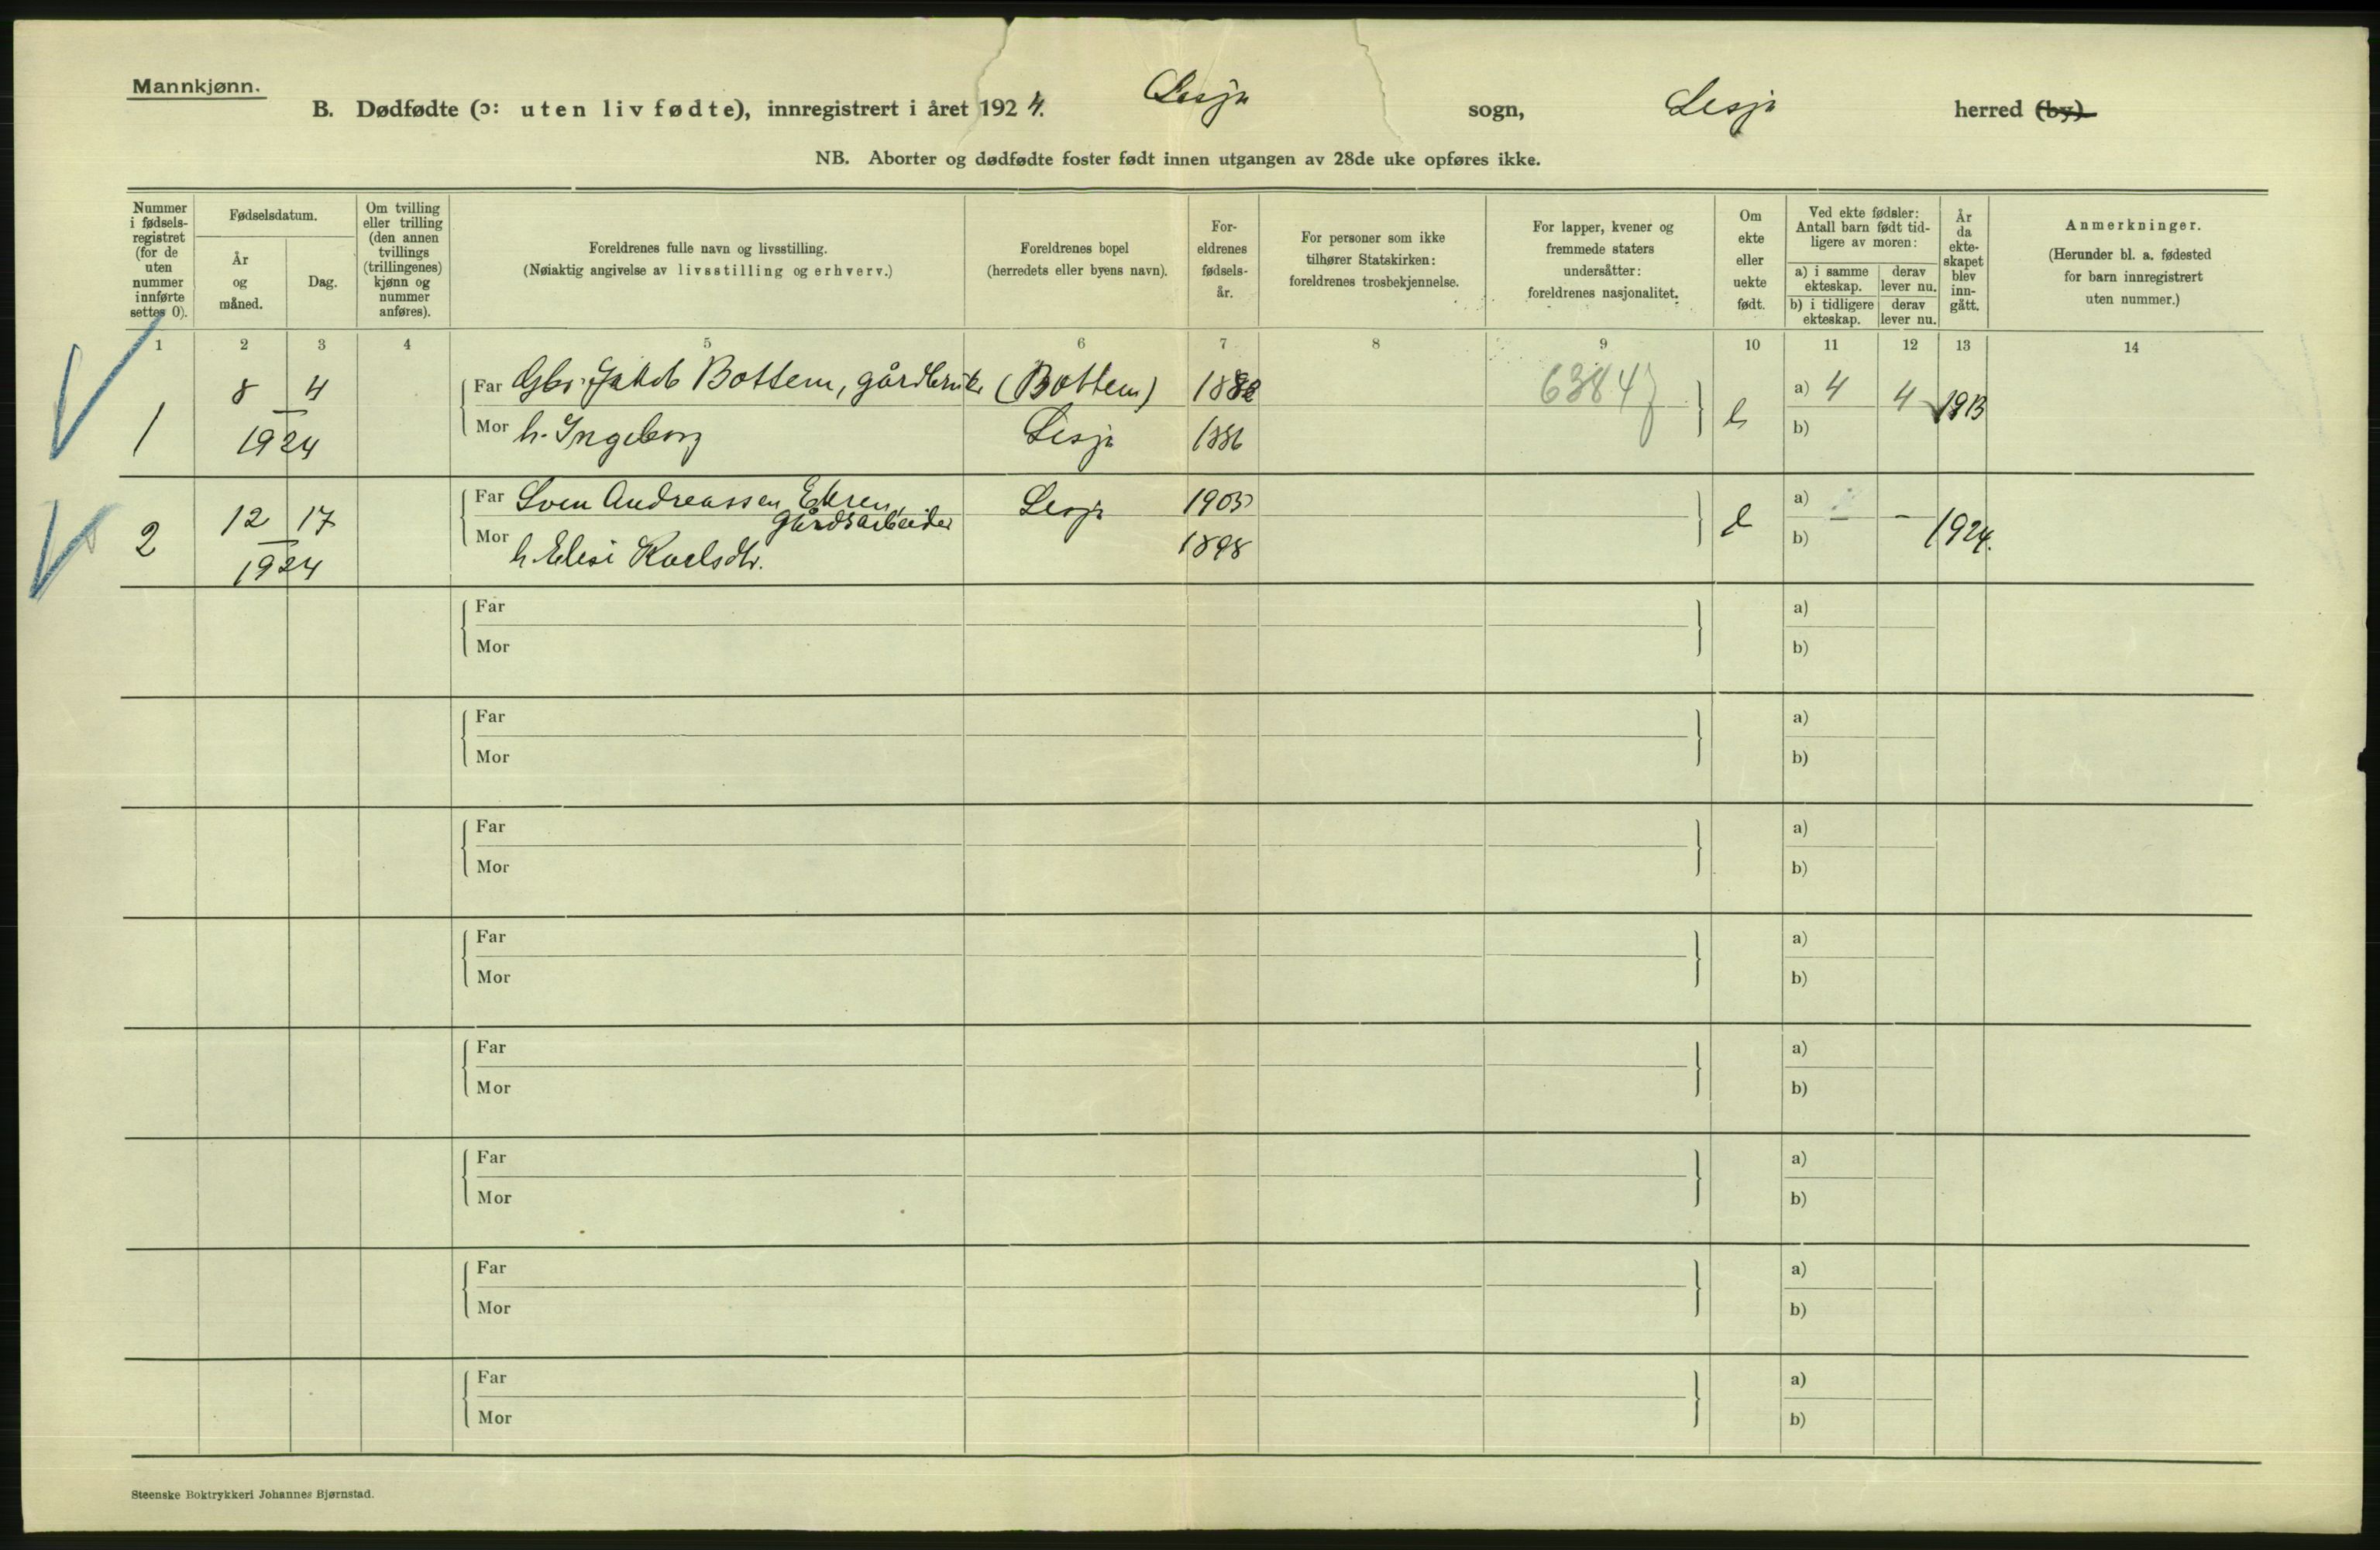 Mannkjønn.
B. Dødfødte (ɔ: uten liv fødte), innregistrert i året 1924. Lesja sogn, Lesja herred (by).
NB. Aborter og dødfødte foster født innen utgangen av 28de uke opføres ikke.
Nummer i fødsels-registret (for de uten nummer innførte settes 0).
Fødselsdatum.
År og måned.
Dag.
Om tvilling eller trilling (den annen tvillings (trillingenes) kjønn og nummer anføres).
Foreldrenes fulle navn og livsstilling.
(Nøiaktig angivelse av livsstilling og erhverv.)
Foreldrenes bopel
(herredets eller byens navn).
For-eldrenes fødsels-år.
For personer som ikke tilhører Statskirken: foreldrenes trosbekjennelse.
For lapper, kvener og fremmede staters undersåtter: foreldrenes nasjonalitet.
Om ekte eller uekte født.
Ved ekte fødsler: Antall barn født tid-ligere av moren:
a) i samme ekteskap.
derav lever nu.
b) i tidligere ekteskap.
derav lever nu.
År da ekte-skapet blev inn-gått.
Anmerkninger.
(Herunder bl. a. fødested for barn innregistrert uten nummer.)
1 2 3 4 5 6 7 8 9 10 11 12 13 14
1 8 4 1924
Far Jakob Bottem, gårdbruker (Bottem) 1882 63847 a) 4 4 1913
Mor h. Ingeborg Lesja 1886 e b)
2 12 17 1924
Far Sven Andreassen Ekren, gårdsarbeider Lesja 1903 e a) – – 1924.
Mor h. Elesi Roelsdtr. 1898 b)
Far a)
Mor b)
Far a)
Mor b)
Far a)
Mor b)
Far a)
Mor b)
Far a)
Mor b)
Far a)
Mor b)
Far a)
Mor b)
Far a)
Mor b)
Steenske Boktrykkeri Johannes Bjørnstad.